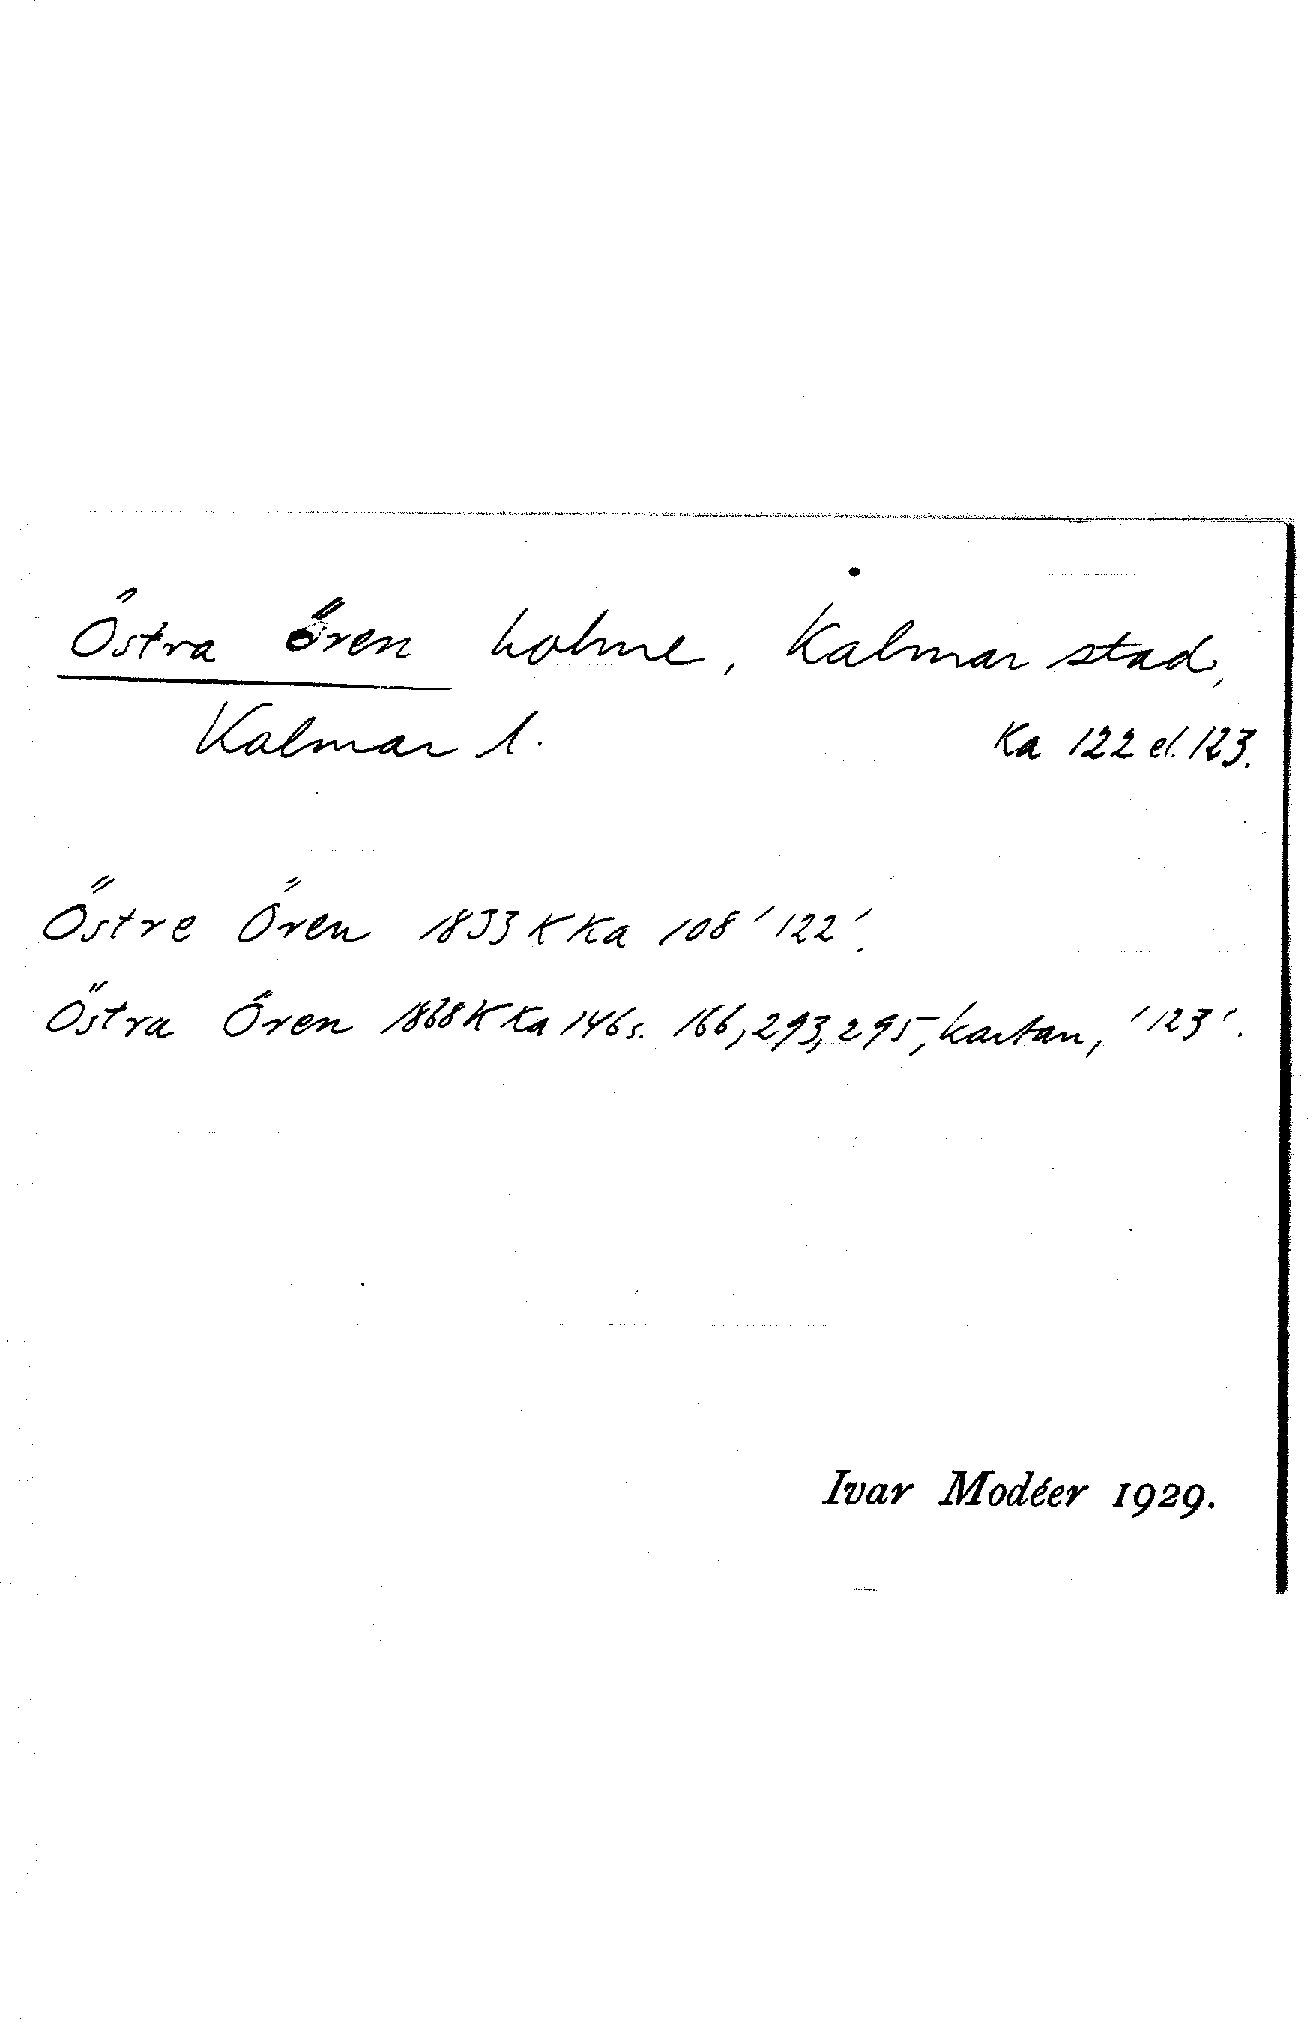 Östra Ören holme, Kalmar stad,
Kalmar l.
Ka 122 el. 123.
Östre Ören 1833 K Ka 108 '122'.
Östra Ören 1868 K Ka 146 s. 166, 293, 295, kartan, '123'.
Ivar Modéer 1929.